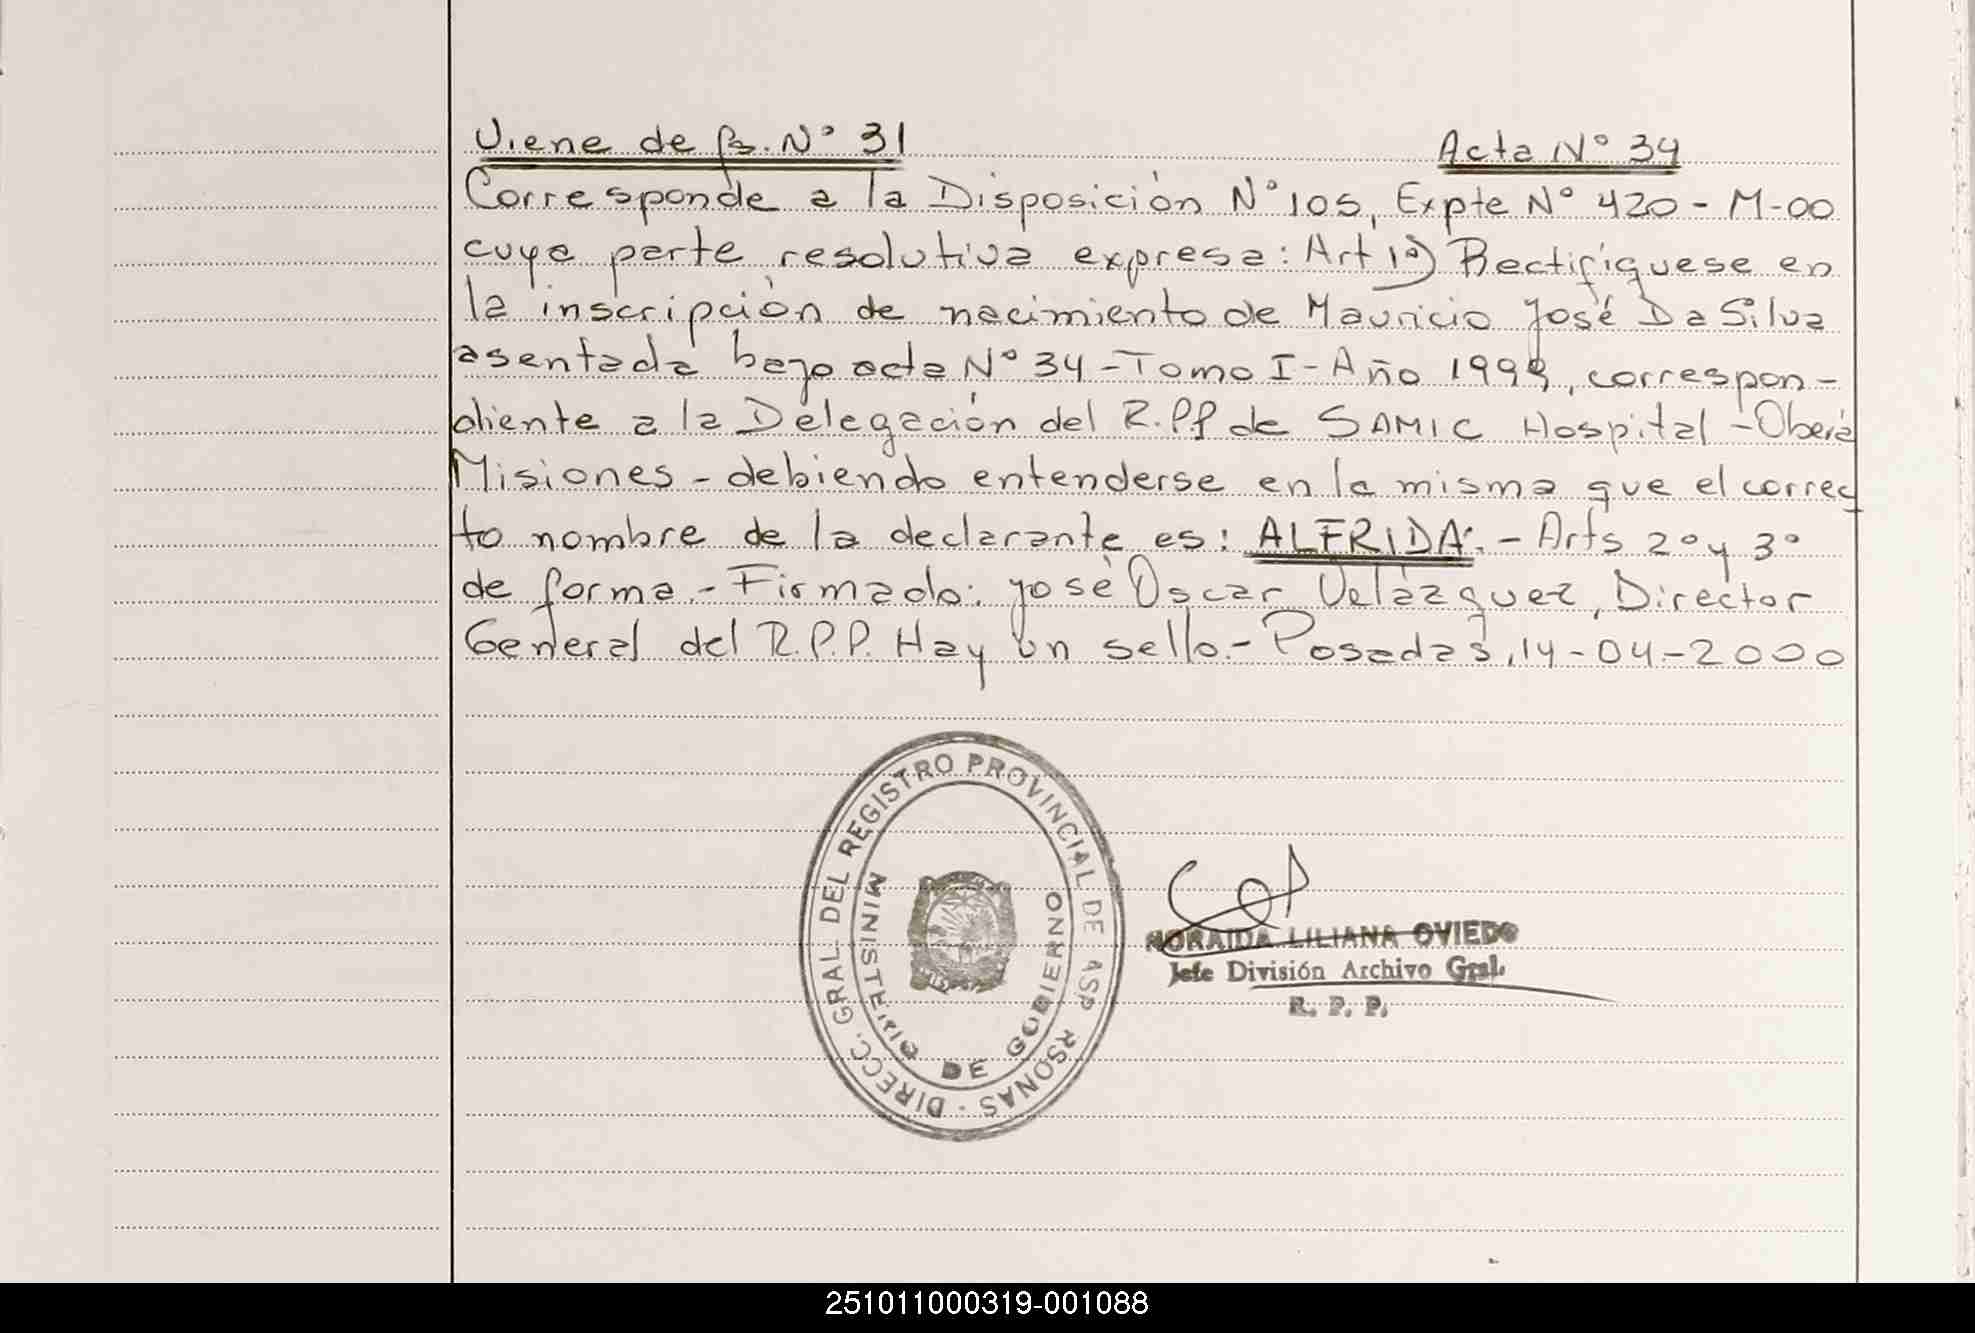 Viene de fs. Nº 31 Acta Nº 34
Corresponde a la Disposición Nº 105, Expte Nº 420-M-00
cuya parte resolutiva expresa: Art 1º) Rectifíquese en
la inscripción de nacimiento de Mauricio José Da Silva
asentada bajo acta Nº 34-Tomo I-Año, correspon-
diente a la Delegación del R.PP de SAMIC Hospital-Oberá
Misiones-debiendo entenderse en la misma que el correc
to nombre de la declarante es: ALFRIDA.-Arts 2º y 3º
de forma.-Firmado: José Oscar Velázquez, Director
General del R.P.P. Hay un sello.-Posadas, 14-04-2000
DIRECC. GRAL DEL REGISTRO PROVINCIAL DE
RSONAS
MINISTERIO DE GOBIERNO
NORAIDA LILIANA OVIEDO
Jefe División Archivo Gral.
R. P. P.
251011000319-001088